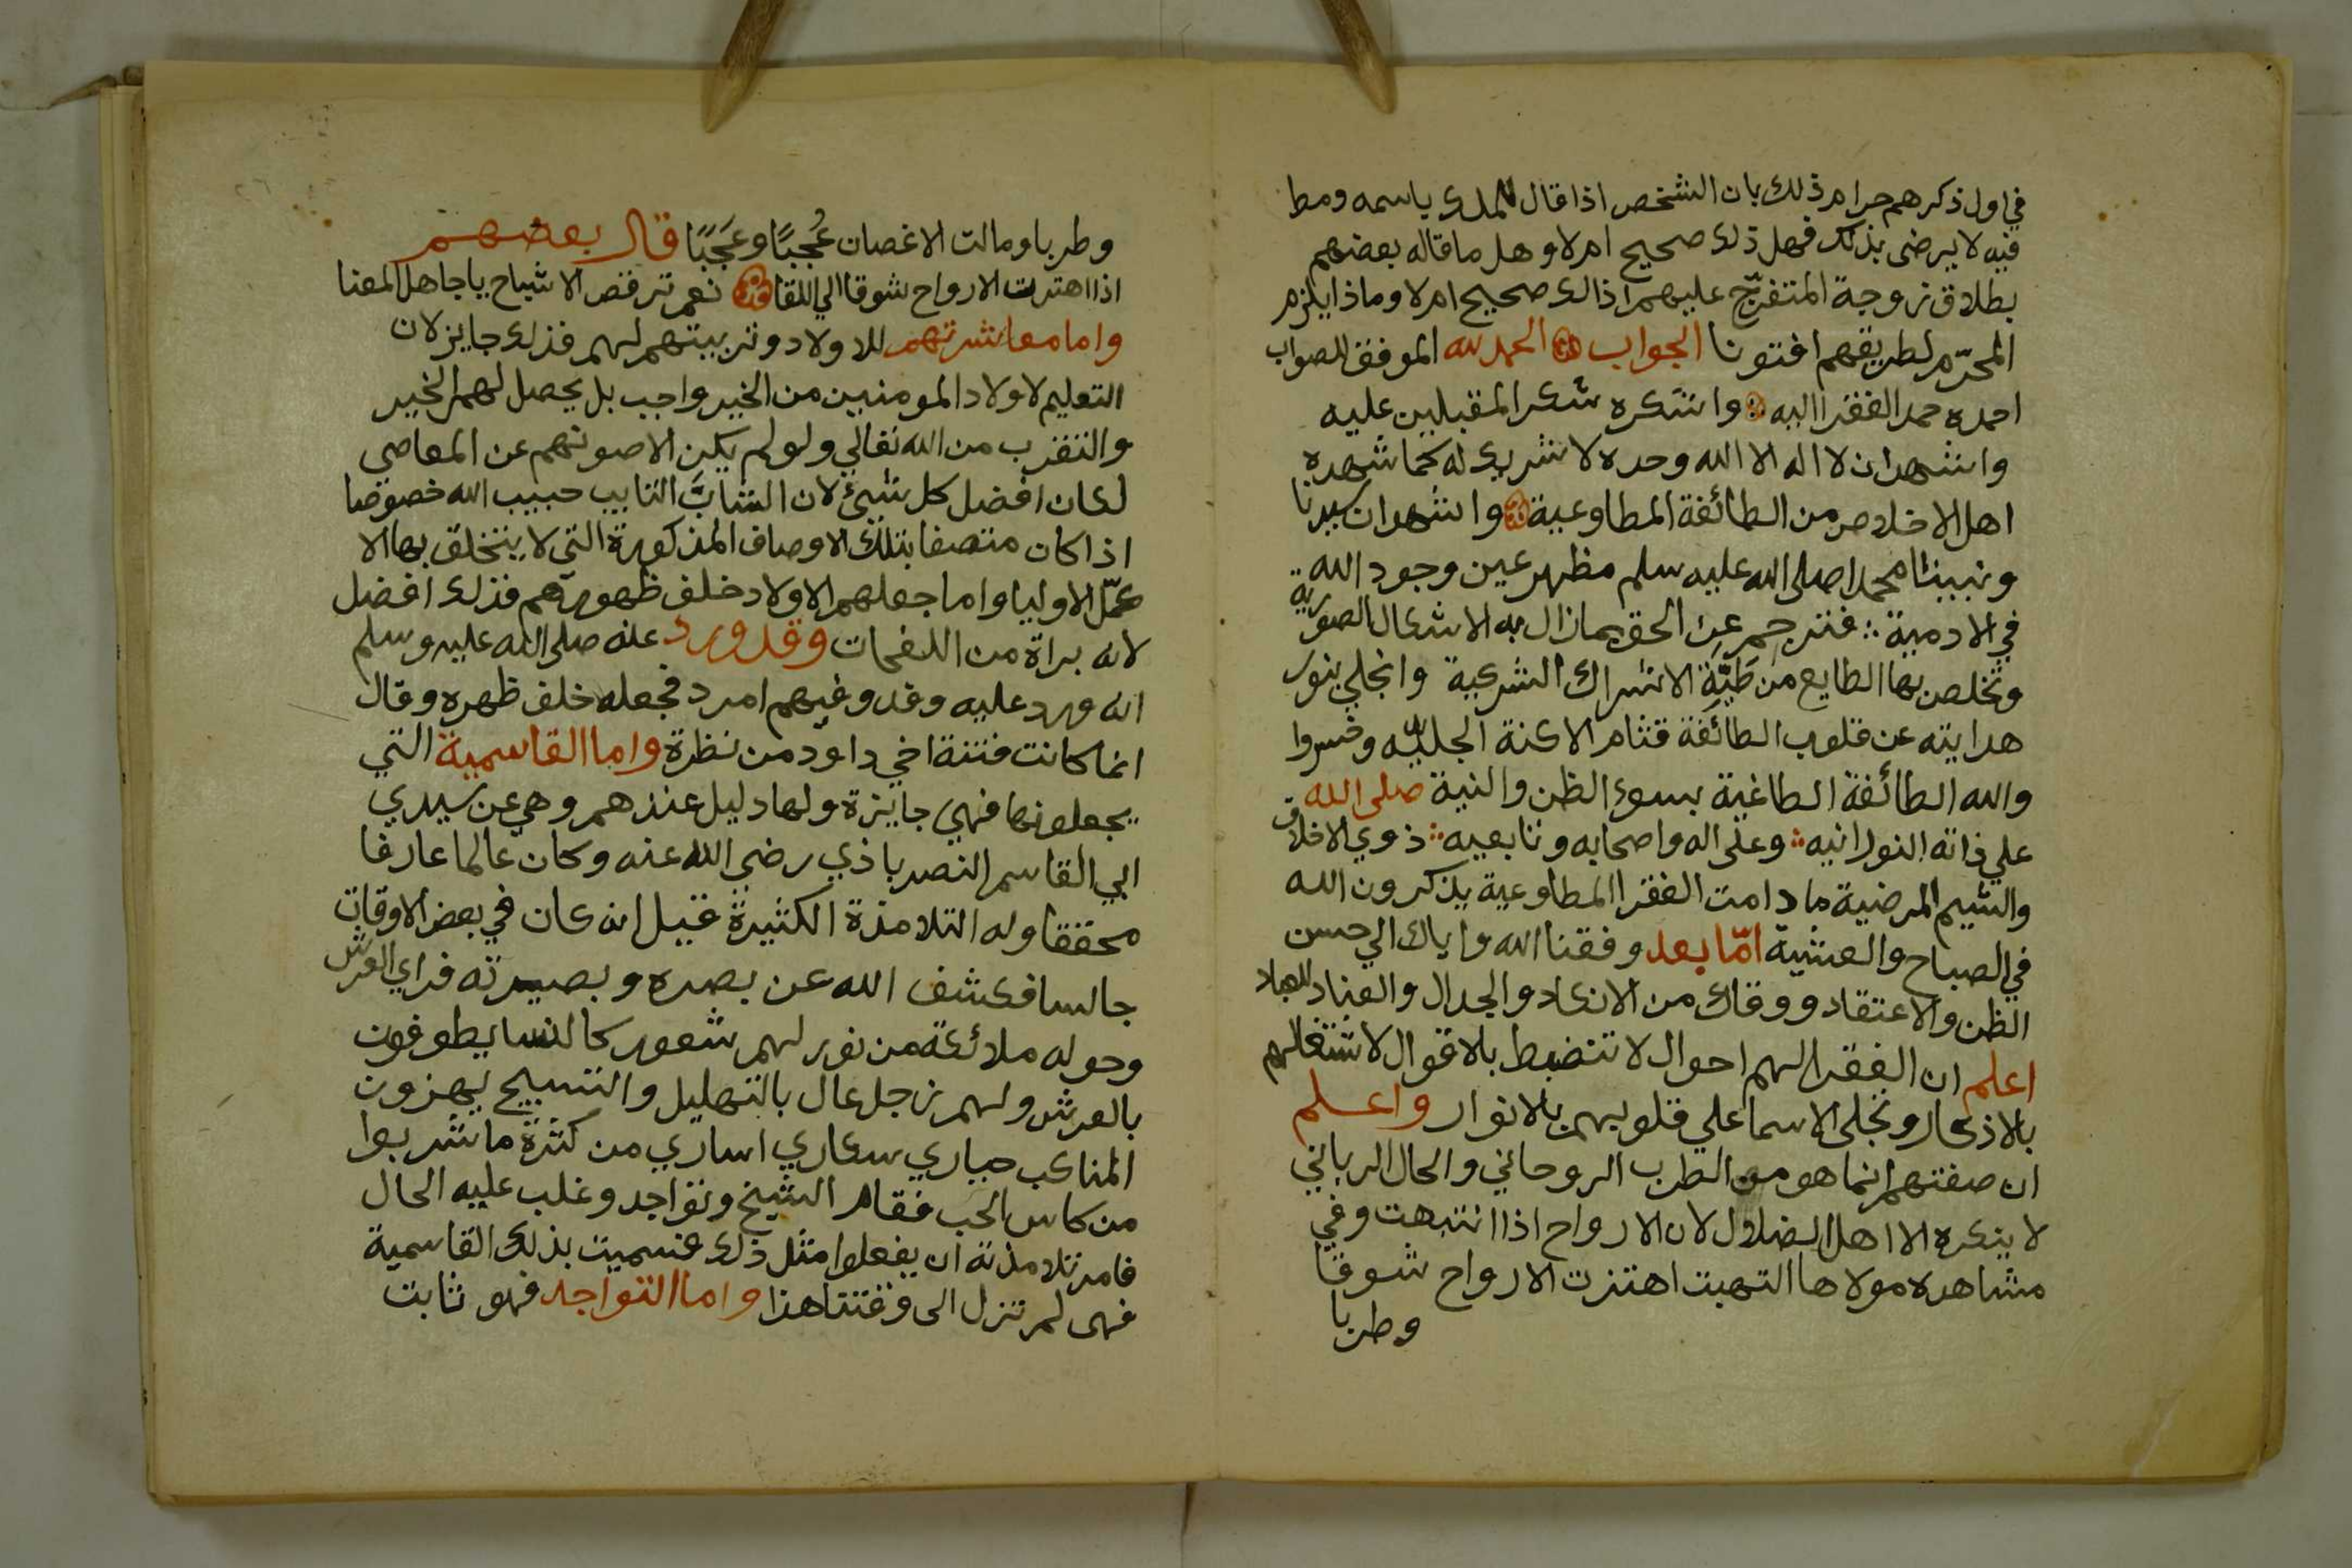 في اول ذكرهم حرام ذلك بان الشخص اذا قال للملك ياسمه ومط
فيه لا يرضى بذلك فهل ذلك صحيح ام لا وهل ما قاله بعضهم
بطلاق زوجة المتفرّج عليهم اذالك صحيح ام لا وماذا يلزم
المحرّم لطريقهم افتونا الجواب الحمد لله الموفق للصواب
احمده حمد الفقرا اليه واشكره شكر المقبلين عليه
واشهد ان لا اله الا الله وحده لا شريك له كما شهده
اهل الاخلاص من الطائفة المطاوعية واشهد ان سيدنا
ونبينا محمدا صلى الله عليه سلم مظهر عين وجود الله
في الادمية فترجم عن الحق بما زال به الاشكال الصورية
وتخلص بها الطايع من طَيّة الاشراك الشركية وانجلي بنور
هدايته عن قلوب الطائفة قتام الاكنة الجليّه وخسروا
والله الطائفة الطاغية بسوء الظن والنية صلى الله
علي ذاته النورانيه وعلى اله واصحابه وتابعيه ذوي الاخلاق
والشيم المرضية ما دامت الفقرا المطاوعية يذكرون الله
في الصباح والعشية امّا بعد وفقنا الله واياك الي حسن
الظن والاعتقاد ووقاك من الانكاد والجدال والعناد
اعلم ان الفقرا لهم احوال لا تنضبط بالاقوال لاشتغالهم
بالاذكار وتجلى الاسما علي قلوبهم بالانوار واعلم
ان صفتهم انما هو من الطرب الروحاني والحال الرباني
لا ينكره الا اهل الضلال لان الارواح اذا انتبهت وفي
مشاهده مولاها التهبت اهتزت الارواح شوقا
وطربا
وطربا ومالت الاغصان عُجبًا وعَجَبًا قال بعضهم
اذا اهتزت الارواح شوقا الي اللقا نعم ترقص الاشباح يا جاهل المعنا
واما معاشرتهم للاولاد وتربيتهم لهم فذلك جايز لان
التعليم لاولاد المومنين من الخير واجب بل يحصل لهم الخير
والتقرب من الله تعالي ولو لم يكن الا صونهم عن المعاصي
لكان افضل كل شيئ لان الشابَّ التايب حبيب الله خصوصا
اذا كان متصفا بتلك الاوصاف المذكورة التي لا يتخلق بها الا
كمّل الاوليا واما جعلهم الاولاد خلف ظهورهم فذلك افضل
لانه براة من اللفحات وقد ورد عنه صلى الله عليه وسلم
انه ورد عليه وفد وفيهم امرد فجعله خلف ظهره وقال
انما كانت فتنة اخي داود من نظرة واما القاسمية التي
يجعلونها فهي جايزة ولها دليل عندهم وهي عن سيدي
ابي القاسم النصرباذي رضى الله عنه وكان عالما عارفا
محققا وله التلامذة الكثيرة فقيل انه كان في بعض الاوقات
جالسا فكشف الله عن بصره وبصيرته فراي العرش
وحوله ملائكة من نور لهم شعور كالنسا يطوفون
بالعرش ولهم زجل عال بالتهليل والتسبيح يهزون
المناكب حياري سكاري اساري من كثرة ما شربوا
من كاس الحب فقام الشيخ وتواجد وغلب عليه الحال
فامر تلامذته ان يفعلوا مثل ذلك فسميت بذلك القاسمية
فهى لم تزل الى وقتنا هذا واما التواجد فهو ثابت